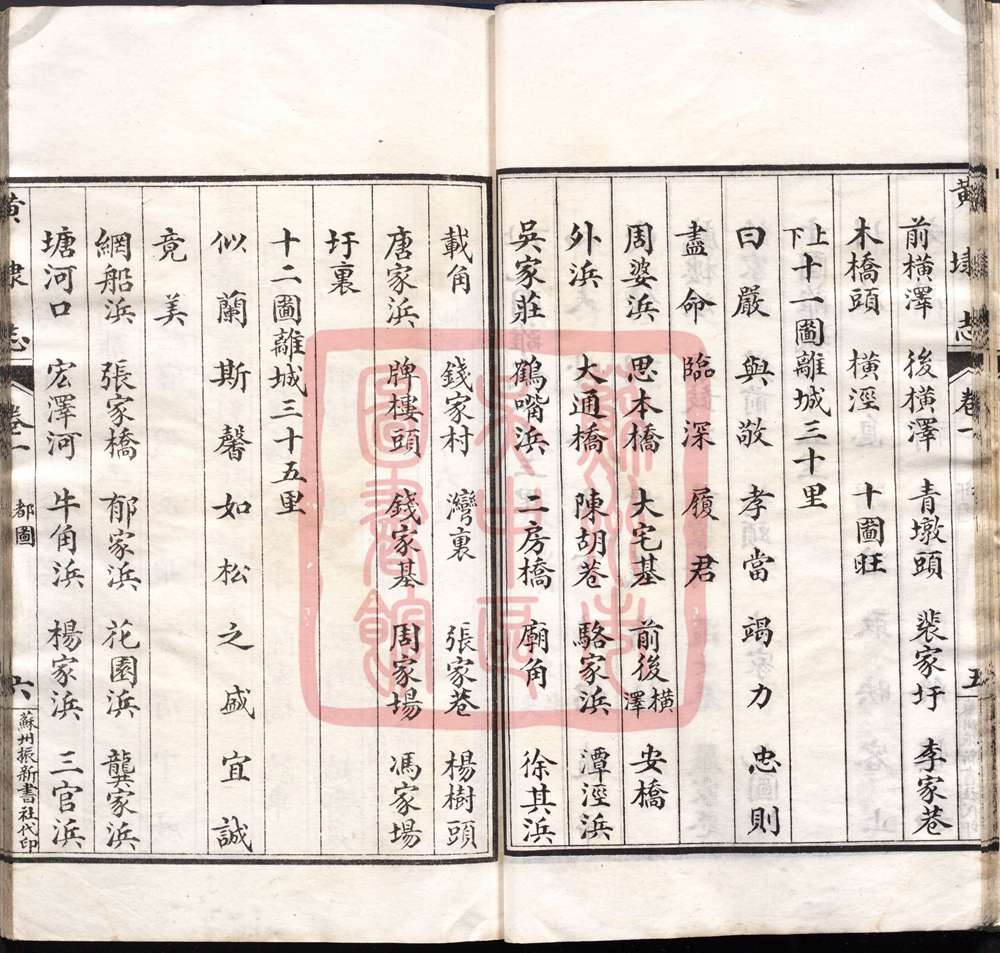 黃埭志 卷一 五
前橫澤 後橫澤 青墩頭 裴家圩 李家巷
木橋頭 橫涇 十圖旺
上下十一圖離城三十里
曰嚴與敬孝當竭力忠則
盡命臨深履 君
周婆浜 思本橋 大宅基 前後橫澤 安橋
外浜 大通橋 陳胡巷 駱家浜 潭涇浜
吳家莊 鶴嘴浜 二房橋 廟角 徐其浜
載角 錢家村 灣裏 張家巷 楊樹頭
唐家浜 牌樓頭 錢家基 周家場 馮家場
圩裏
十二圖離城三十五里
似蘭斯馨如松之盛宜誠
竟美
網船浜 張家橋 郁家浜 花園浜 龔家浜
塘河口 宏澤河 牛角浜 楊家浜 三官浜
黃埭志 卷一 都圖 六 蘇州振新書社代印
蘇州市吳中區圖書館